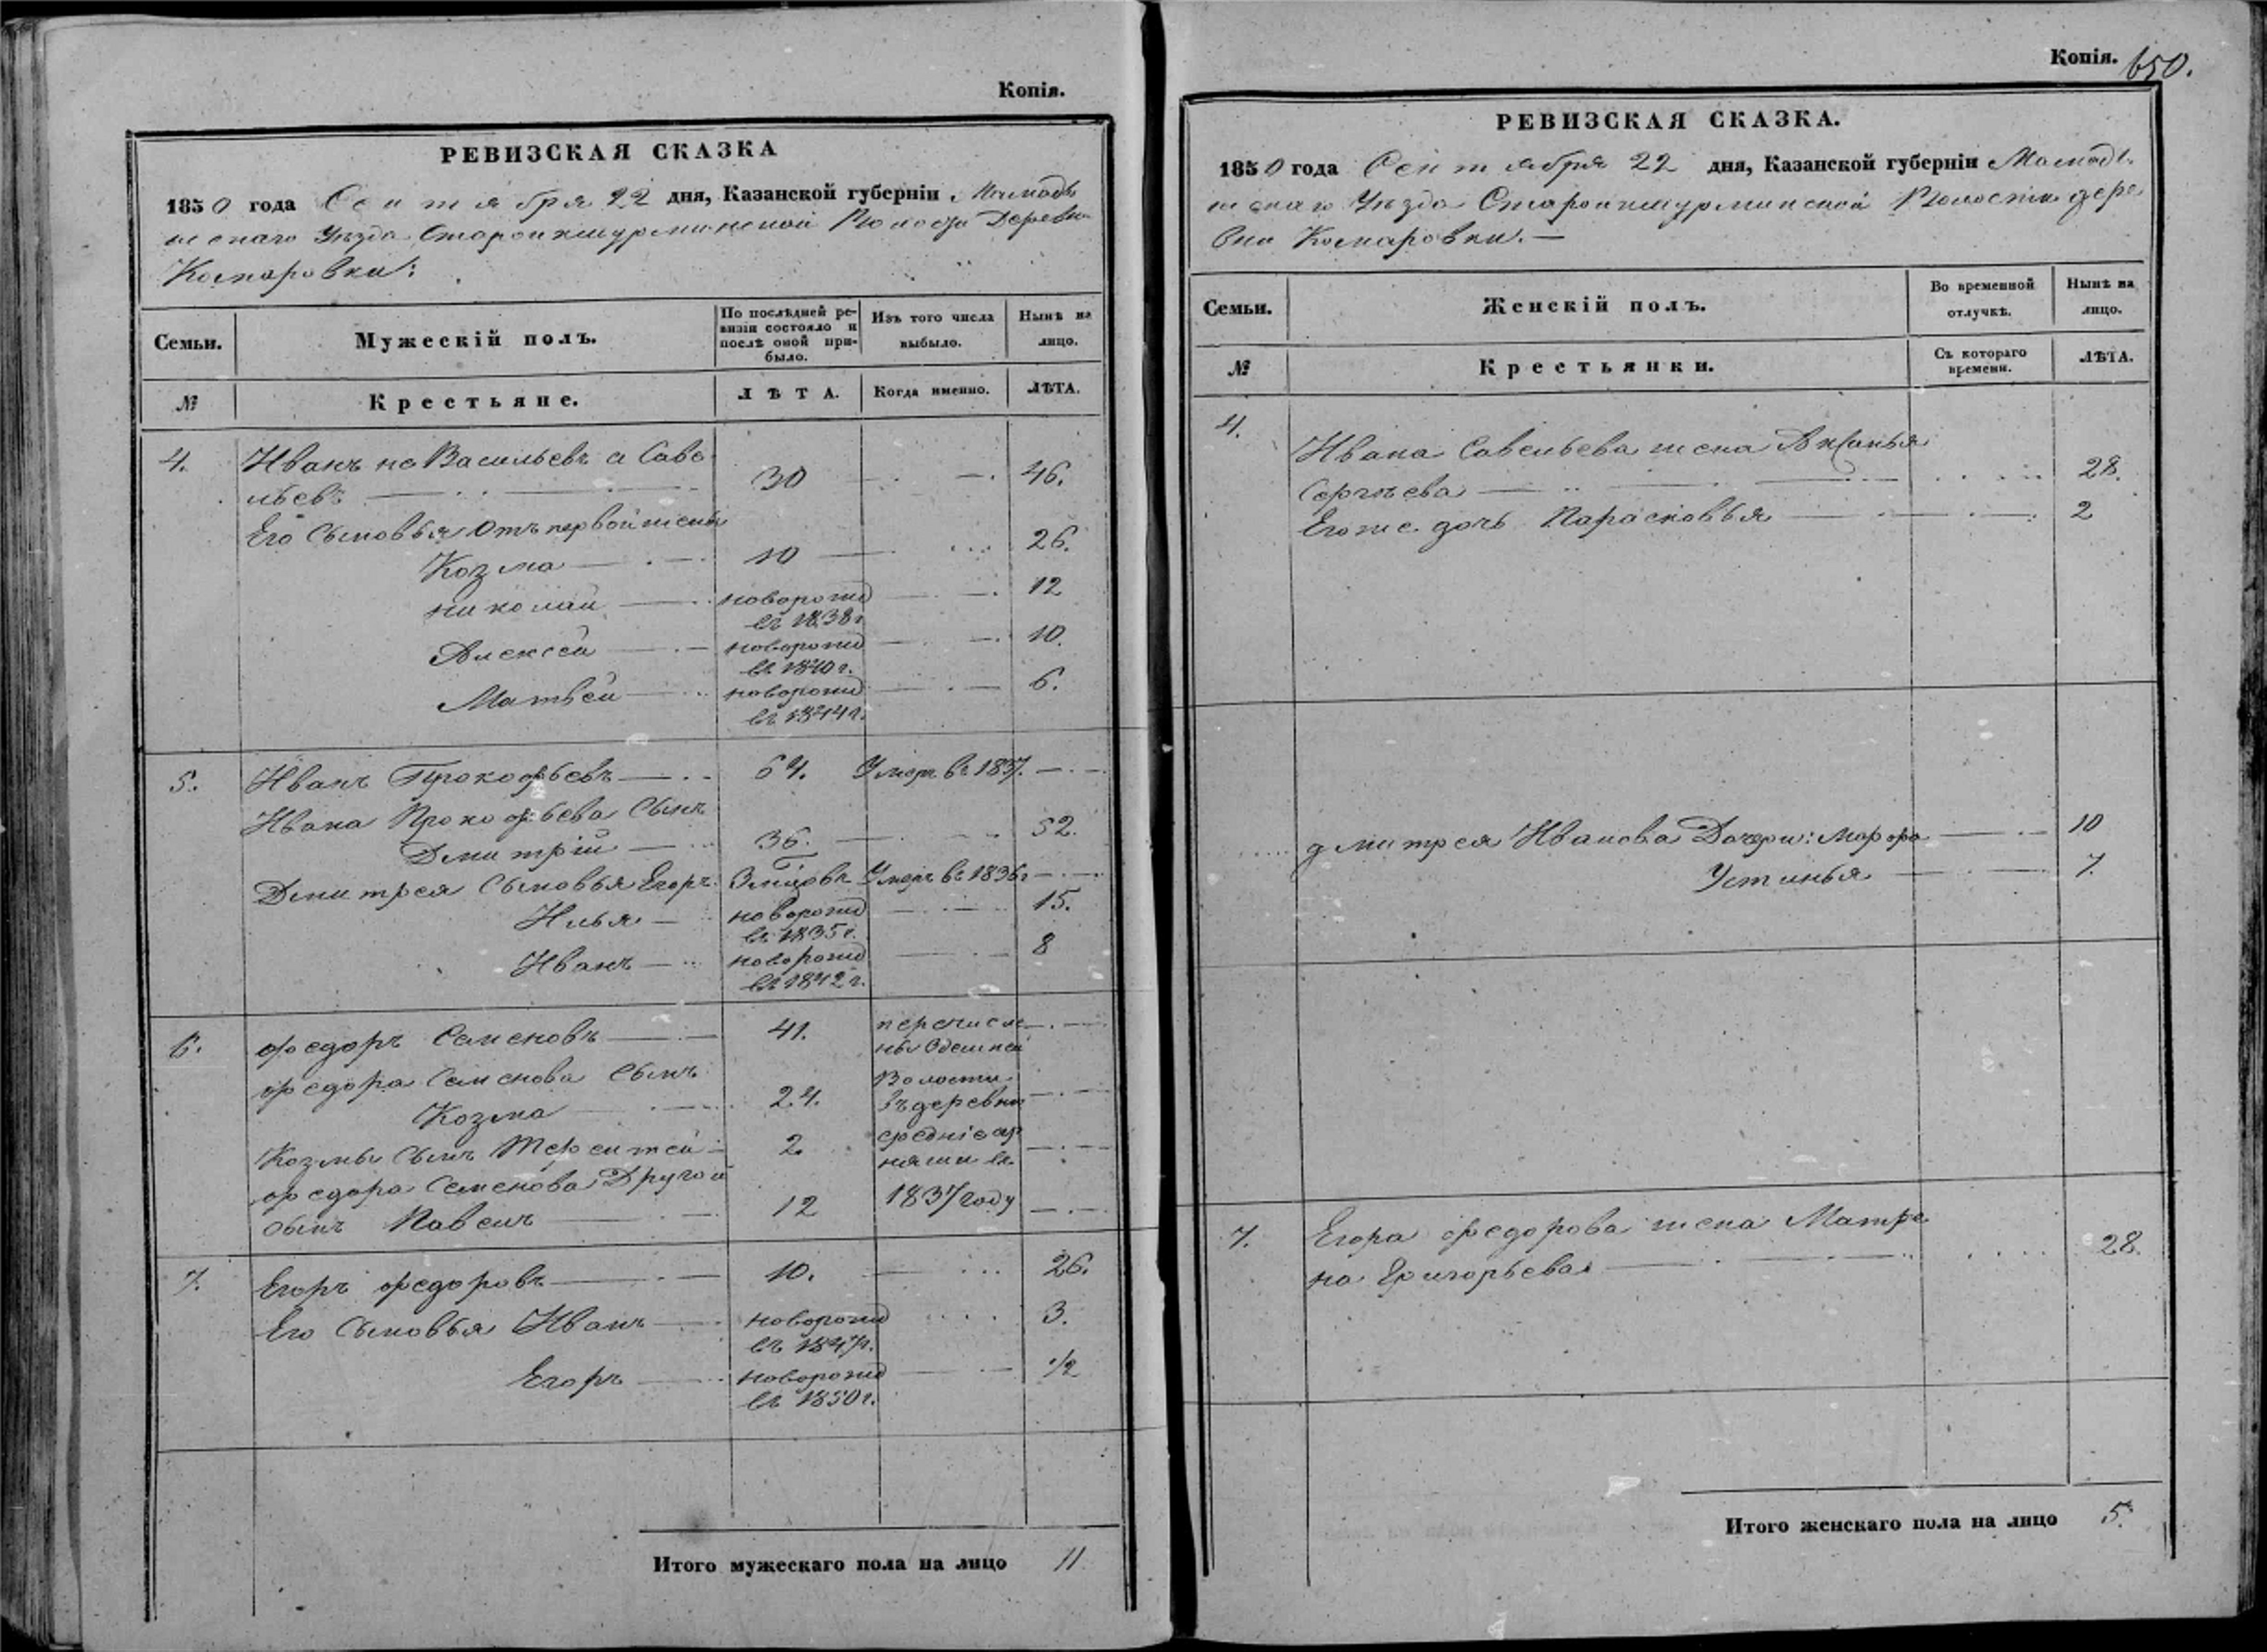 Копія.
РЕВИЗСКАЯ СКАЗКА
1850 года Сентября 22 дня, Казанской губерніи Мамады
шскаго Уѣзда Старопшурминской Волости Деревни
Комаровки:
Семьи. Мужескій полъ. По послѣдней ре- Изъ того числа Нынѣ на
визіи состояло и выбыло. лицо.
послѣ оной при-
было.
№ Крестьяне. ЛѢТА. Когда именно. ЛѢТА.
4. Иванъ не Васильевъ а Саве
льевъ 30 46.
Его Сыновья Отъ первой жены
Козма 10 26.
Николай новорожд 12
въ 1838г
Алексей новорожд 10.
въ 1840 г.
Матвей новорожд 6.
въ 1844 г.
5. Иванъ Прокофьевъ 64. Умеръ въ 1837.
Ивана Прокофьева Сынъ
Дмитрій 36. 52.
Дмитрея Сыновья Егоръ Умеръ въ 1836г
Илья новорожд 15.
въ 1835г.
Иванъ новорожд 8
въ 1842 г.
6. Федоръ Семеновъ 41. перечисле
ны Здешней
Федора Семенова Сынъ Волости
Козма 24. въ деревню
Козмы Сынъ Терентей 2.
Федора Семенова Другой
Сынъ Павелъ 12 1837 году
7. Егоръ Федоровъ 10. 26.
Его Сыновья Иванъ новорожд 3.
въ 1847г.
Егоръ новорожд 1/2
въ 1850 г.
Итого мужескаго пола на лицо 11
Копія. 650.
РЕВИЗСКАЯ СКАЗКА.
1850 года Сентября 22 дня, Казанской губерніи Мамады
шскаго Уѣзда Старопшурминской Волости дере
вни Комаровки.
Семьи. Женскій полъ. Во временной Нынѣ на
отлучкѣ. лицо.
№ Крестьянки. Съ котораго ЛѢТА.
времени.
4. Ивана Савельева жена Аксинья
Сергѣева 28.
Его же дочь Парасковья 2
Дмитрея Иванова Дочери: Марфа 10
Устинья 7.
7. Егора Федорова жена Матре
на Григорьева 28.
Итого женскаго пола на лицо 5.